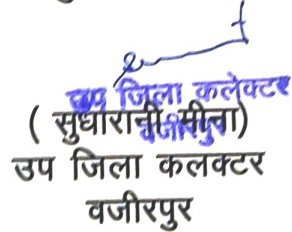 उप जिला कलेक्टर
वजीरपुर
( सुधारानी मीना)
उप जिला कलक्टर
वजीरपुर